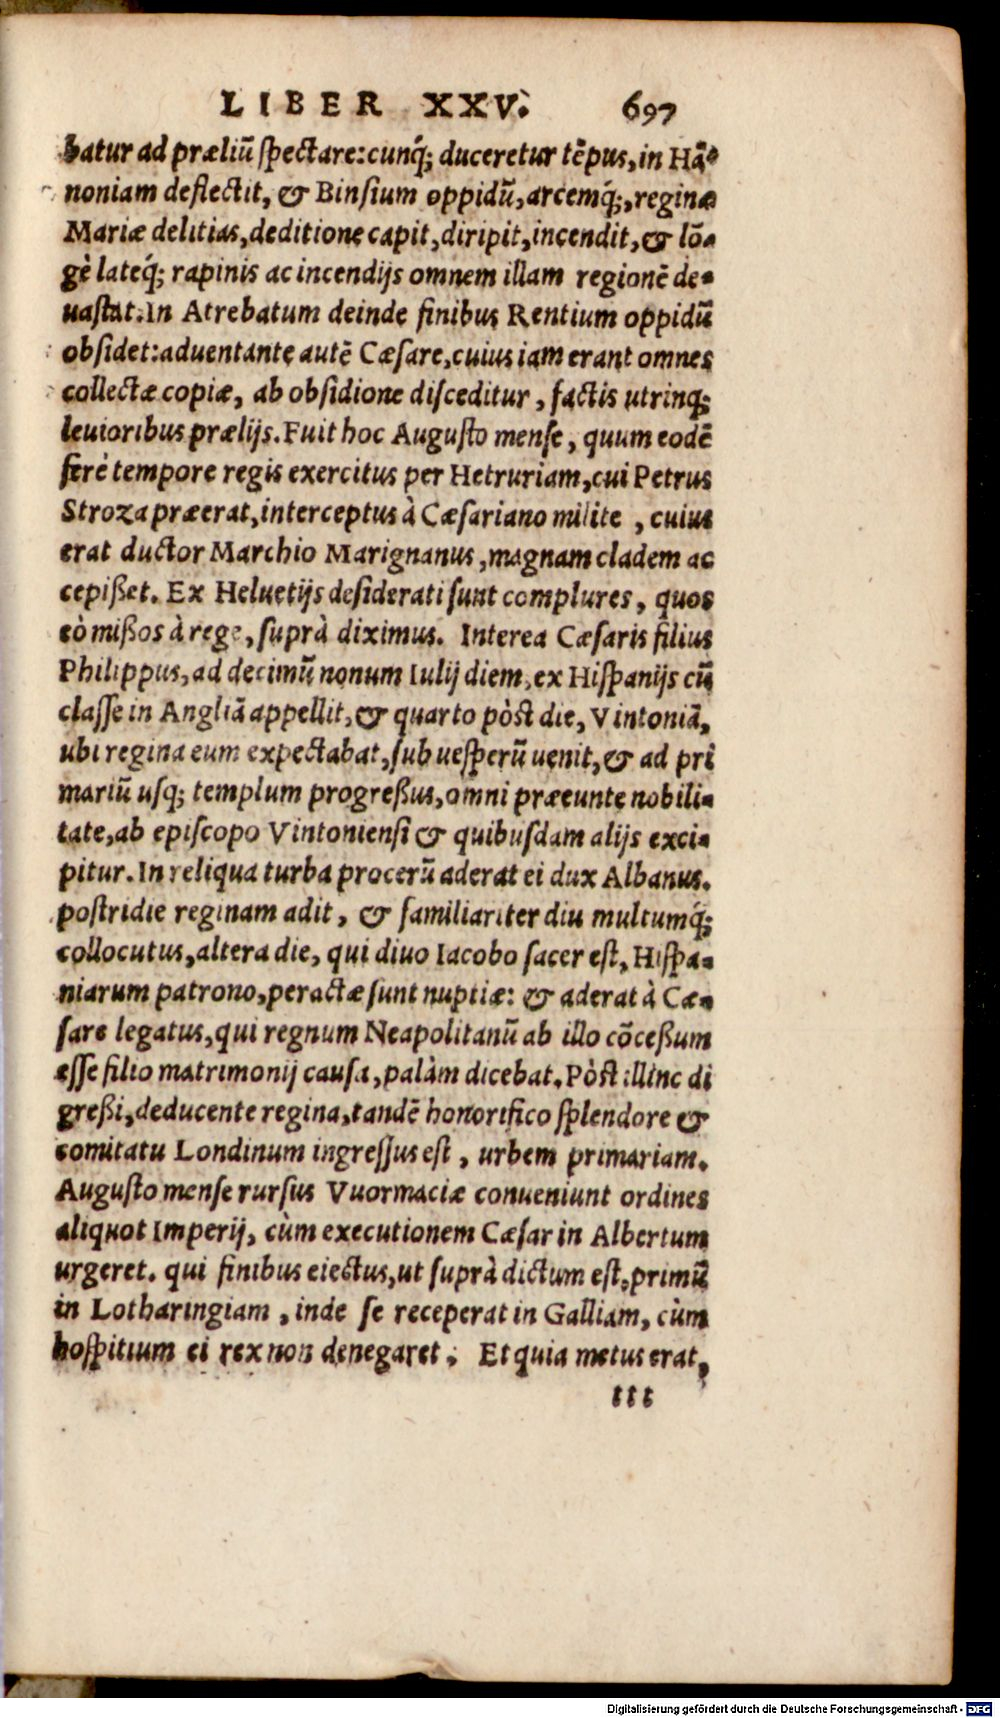 LIBER XXV. 697
batur ad præliū ſpectare: cunq́; duceretur tēpus, in Hā-
noniam deflectit, & Binſium oppidū, arcemq́;, reginæ
Mariæ delitias, deditione capit, diripit, incendit, & lō-
gè lateq́; rapinis ac incendijs omnem illam regionē de-
uaſtat. In Atrebatum deinde finibus Rentium oppidū
obſidet: aduentante autē Cæſare, cuius iam erant omnes
collectæ copiæ, ab obſidione diſceditur, factis utrinq;
leuioribus prælijs. Fuit hoc Auguſto menſe, quum eodē
ferè tempore regis exercitus per Hetruriam, cui Petrus
Stroza præerat, interceptus à Cæſariano milite, cuius
erat ductor Marchio Marignanus, magnam cladem ac
cepißet. Ex Heluetijs deſiderati ſunt complures, quos
eò mißos à rege, ſuprà diximus. Interea Cæſaris filius
Philippus, ad decimū nonum Iulij diem, ex Hiſpanijs cū
claſſe in Angliā appellit, & quarto pòſt die, Vintoniā,
ubi regina eum expectabat, ſub ueſperū uenit, & ad pri
mariū uſq; templum progreßus, omni præeunte nobili-
tate, ab epiſcopo Vintonienſi & quibuſdam alijs exci-
pitur. In reliqua turba procerū aderat ei dux Albanus.
poſtridie reginam adit, & familiariter diu multumq́;
collocutus, altera die, qui diuo Iacobo ſacer eſt, Hiſpa-
niarum patrono, peractæ ſunt nuptiæ: & aderat à Cæ-
ſare legatus, qui regnum Neapolitanū ab illo cōceßum
eſſe filio matrimonij cauſa, palàm dicebat. Pòſt illinc di
greßi, deducente regina, tandē honorifico ſplendore &
comitatu Londinum ingreſſus eſt, urbem primariam.
Auguſto menſe rurſus Vuormaciæ conueniunt ordines
aliquot Imperij, cùm executionem Cæſar in Albertum
urgeret. qui finibus eiectus, ut ſuprà dictum eſt, primū
in Lotharingiam, inde ſe receperat in Galliam, cùm
hoſpitium ei rex non denegaret. Et quia metus erat,
ttt
Digitalisierung gefördert durch die Deutsche Forschungsgemeinschaft - DFG